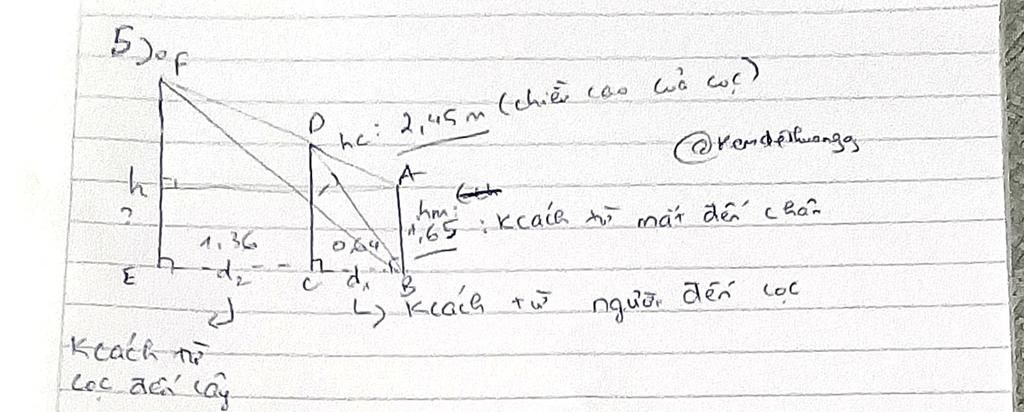 5)
F
D hc: 2,45m (chiều cao củả cọc)
@kemdethuongg
h A
? hm:
1,65 : Kcách từ mắt đến chân
1,36 0,64
E d₂ C d₁ B
↳ Kcách từ người đến cọc
Kcách từ
cọc đến cây